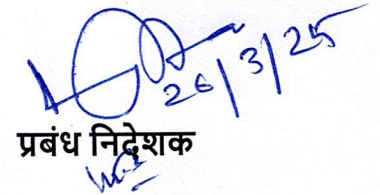 26/3/25
प्रबंध निदेशक